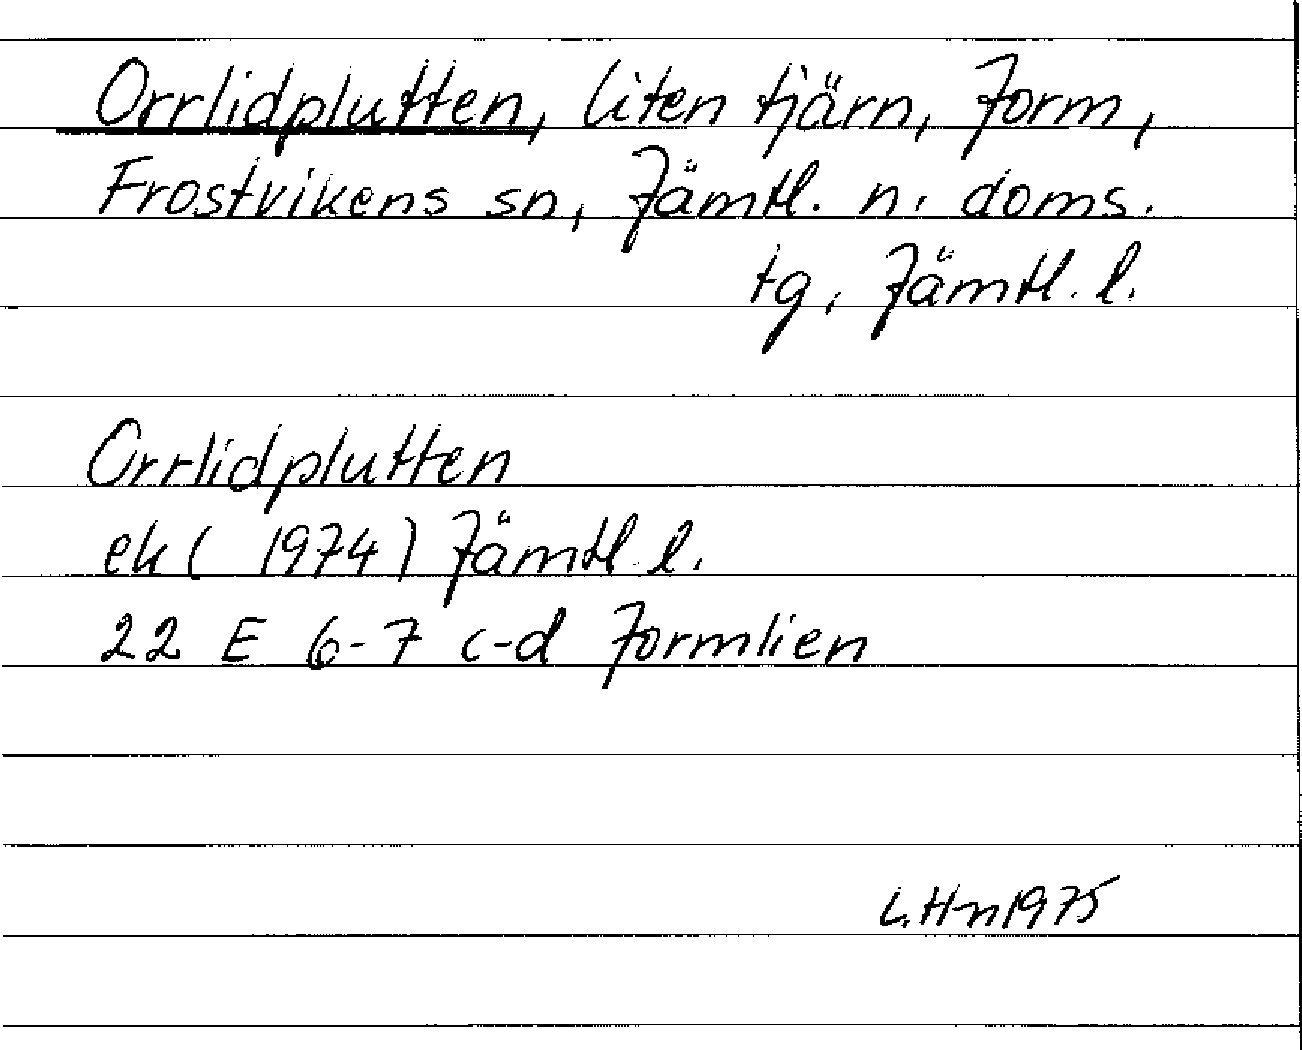 Orrlidplutten, liten tjärn, Jorm,
Frostvikens sn, Jämtl. n. doms.
tg, Jämtl. l.
Orrlidplutten
ek (1974) Jämtl. l.
22 E 6-7 c-d Jormlien
L.H-n 1975